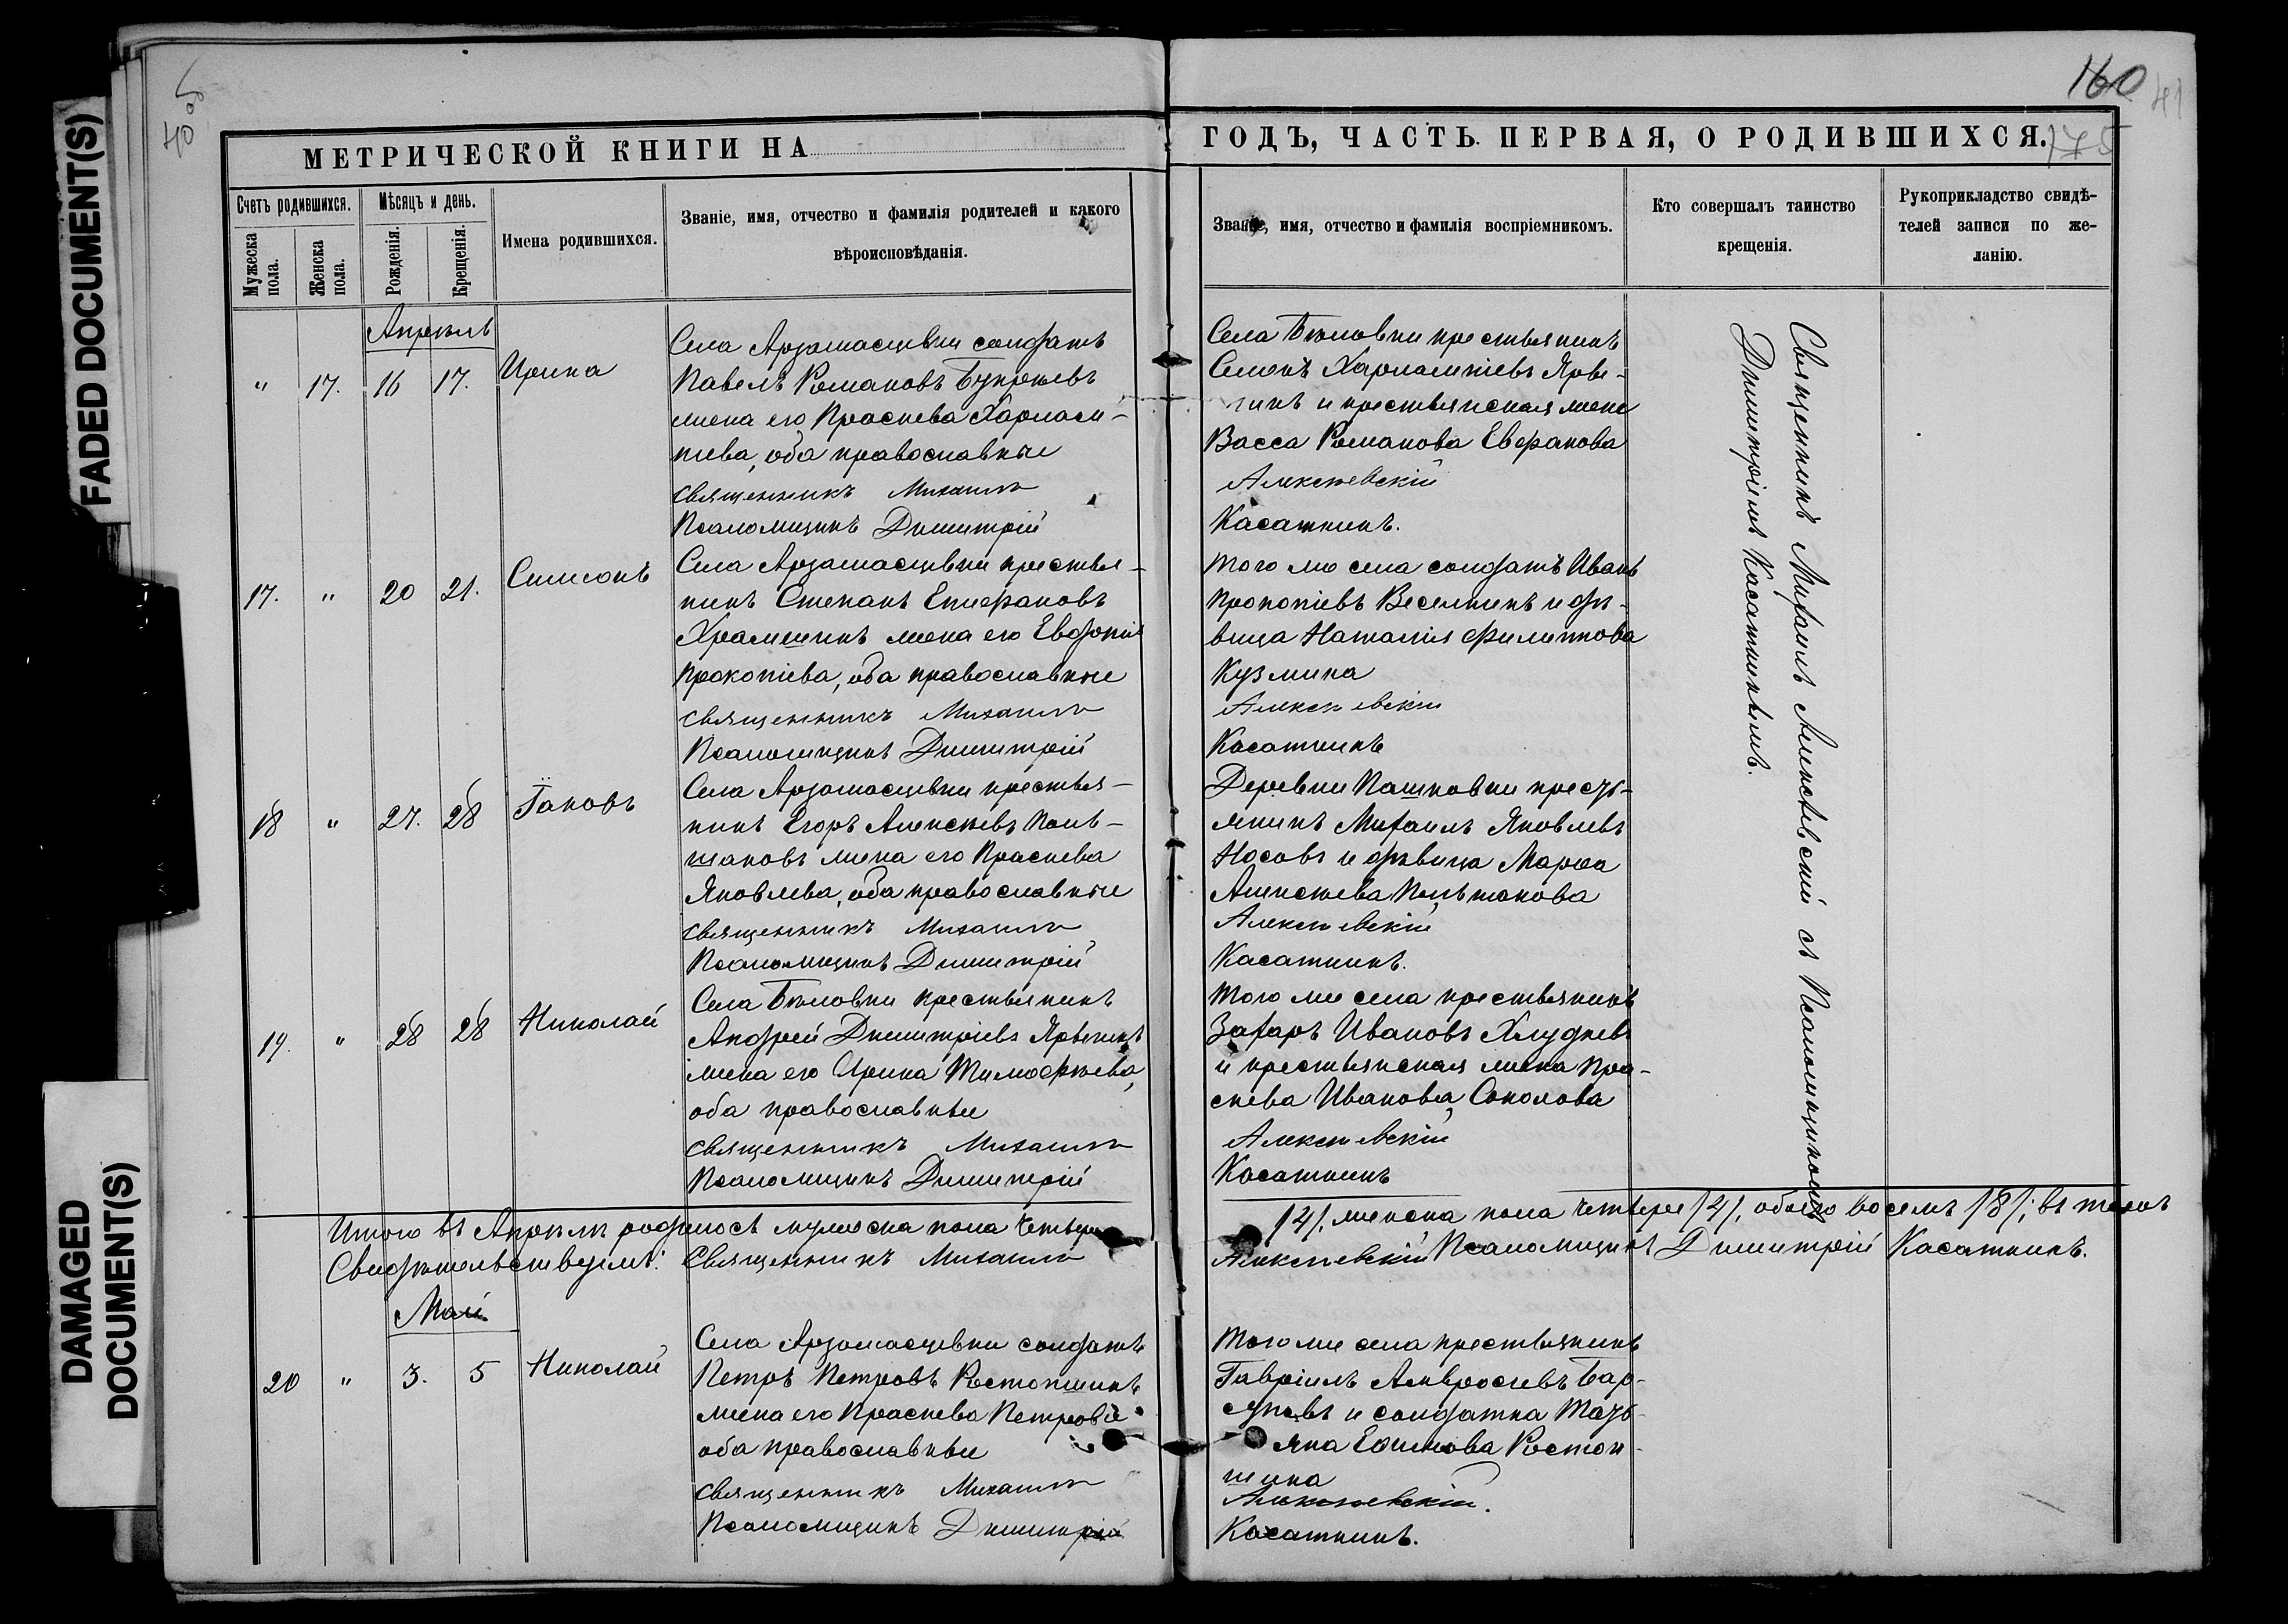 FADED DOCUMENT(S)
DAMAGED DOCUMENT(S)
160
41
175
МЕТРИЧЕСКОЙ КНИГИ НА
ГОДЪ, ЧАСТЬ ПЕРВАЯ, О РОДИВШИХСЯ.
Счетъ родившихся.
Мужеска пола.
Женска пола.
Мѣсяцъ и день.
Рожденія.
Крещенія.
Имена родившихся.
Званіе, имя, отчество и фамилія родителей и какого
вѣроисповѣданія.
Званіе, имя, отчество и фамилія воспріемникомъ.
Кто совершалъ таинство
крещенія.
Рукоприкладство свидѣ-
телей записи по же-
ланію.
Апрѣль
" 17. 16 17. Ирина
Села Арзамасцевки солдатъ
Павелъ Романовъ
жена его Праскева Харлам-
піева, оба православные
Священникъ Михаилъ
Псаломщикъ Димитрій
Села Бѣловки крестьянинъ
Семенъ Харлампіевъ Яры-
гинъ и крестьянская жена
Васса Романова
Алексѣевскій
Касаткинъ.
17. " 20 21. Симеонъ
Села Арзамасцевки крестья-
нинъ Степанъ Епифановъ
Храмшинъ жена его Евдокія
Прокопіева, оба православные
Священникъ Михаилъ
Псаломщикъ Димитрій
Того же села солдатъ Иванъ
Прокопіевъ Веселкинъ и дѣ-
вица Наталія Филиппова
Кузмина
Алексѣевскій
Касаткинъ
18 " 27. 28 Іаковъ
Села Арзамасцевки крестья-
нинъ Егоръ Алексѣевъ Коль-
шаковъ жена его Праскева
Яковлева, оба православные
Священникъ Михаилъ
Псаломщикъ Димитрій
Деревни Пашковки кресть-
янинъ Михаилъ Яковлевъ
Носовъ и дѣвица Марѳа
Алексѣева
Алексѣевскій
Касаткинъ.
19. " 28 28 Николай
Села Бѣловки крестьянинъ
Андрей Димитріевъ Ярыгинъ
жена его Ирина Тимофѣева,
оба православные
Священникъ Михаилъ
Псаломщикъ Димитрій
Того же села крестьянинъ
Захаръ Ивановъ Хлудневъ
и крестьянская жена Пра-
скева Иванова Соколова
Алексѣевскій
Касаткинъ
Священникъ Михаилъ Алексѣевскій съ Псаломщикомъ
Димитріемъ Касаткинымъ.
Итого въ Апрѣлѣ родилось мужеска пола четверо
/4/, женска пола четверо /4/, обоего восемь /8/; въ томъ
Свидѣтельствуемъ: Священникъ Михаилъ
Алексѣевскій Псаломщикъ Димитрій Касаткинъ.
Май
20 " 3. 5 Николай
Села Арзамасцевки солдатъ
Петръ Петровъ Ростопшинъ
жена его Праскева Петрова
оба православные
Священникъ Михаилъ
Псаломщикъ Димитрій
Того же села крестьянинъ
Гавріилъ Амвросіевъ Бар-
суковъ и солдатка Тать-
яна Ефимова Ростоп-
шина
Алексѣевскій.
Касаткинъ.